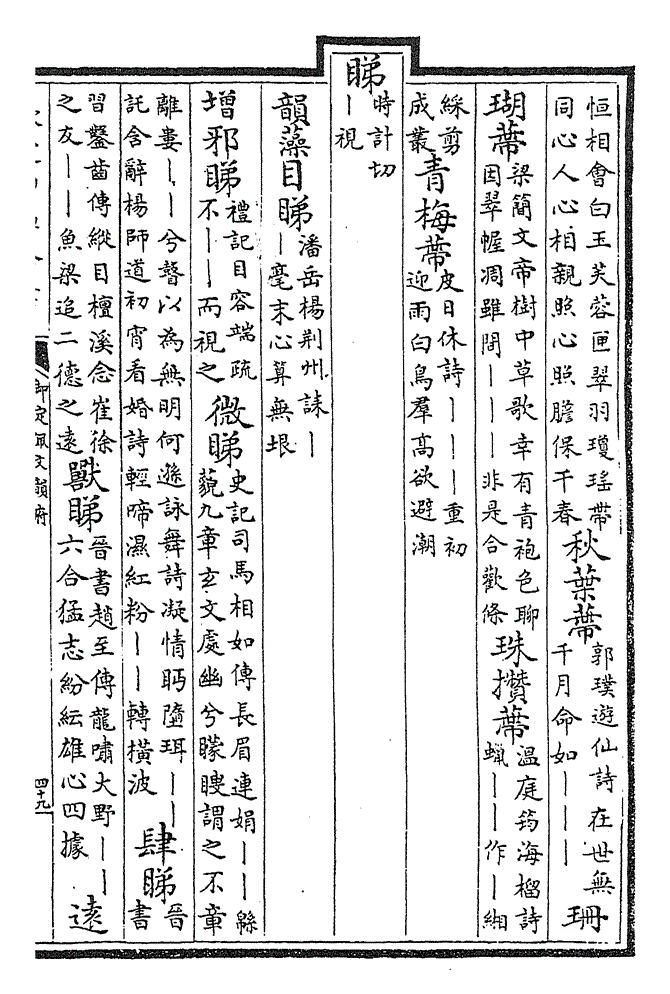 恒相會白玉芙蓉匣翠羽瓊瑤帶
同心人心相親照心照膽保千春
秋葉蔕
郭璞遊仙詩在世無
千月命如｜｜｜
珊
瑚蔕
梁簡文帝樹中草歌幸有青袍色聊
因翠幄凋雖間｜｜｜非是合歡條
珠攢蔕
溫庭筠海榴詩
蠟｜｜作｜緗
綵剪
成叢
青梅蔕
皮日休詩｜｜｜重初
迎雨白鳥羣高欲避潮
睇
時計切
｜視
韻藻目睇
潘岳楊荆州誄｜
｜毫末心算無垠
增邪睇
禮記目容端疏
不｜｜而視之
微睇
史記司馬相如傳長眉連娟｜｜緜
藐九章玄文處幽兮矇瞍謂之不章
離婁｜｜兮瞽以為無明何遜詠舞詩凝情眄墮珥｜｜
託含辭楊師道初宵看婚詩輕啼濕紅粉｜｜轉橫波
肆睇
晉
書
習鑿齒傳縱目檀溪念崔徐
之友｜｜魚梁追二德之遠
獸睇
晉書趙至傳龍嘯大野｜｜
六合猛志紛紜雄心四據
遠
御定佩文韻府
四十九